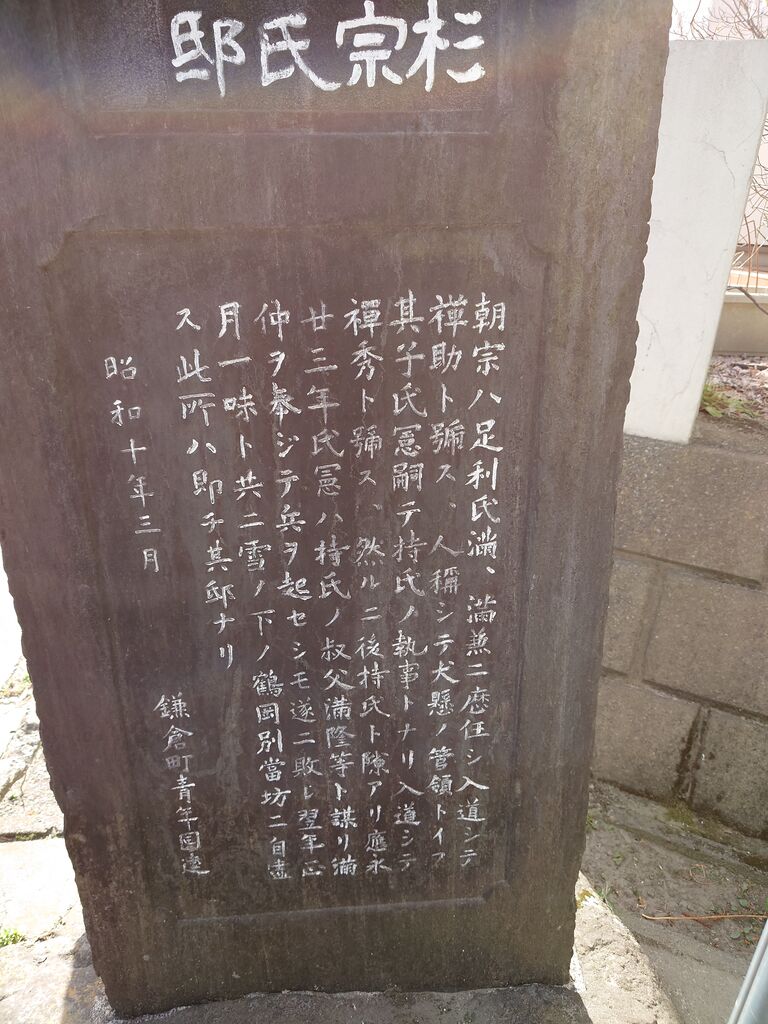 杉宗氏邸
朝宗ハ足利氏満、満兼ニ歴任シ入道シテ
禅助ト號ス、人稱シテ犬懸ノ管領トイフ
其子氏憲嗣テ持氏ノ執事トナリ入道シテ
禪秀ト號ス、然ルニ後持氏ト隙アリ應永
廿三年氏憲ハ持氏ノ叔父満隆等ト謀リ満
仲ヲ奉ジテ兵ヲ起セシモ遂ニ敗レ翌年正
月一味ト共ニ雪ノ下ノ鶴岡別當坊ニ自盡
ス此所ハ即チ其邸ナリ
昭和十年三月
鎌倉町青年團建